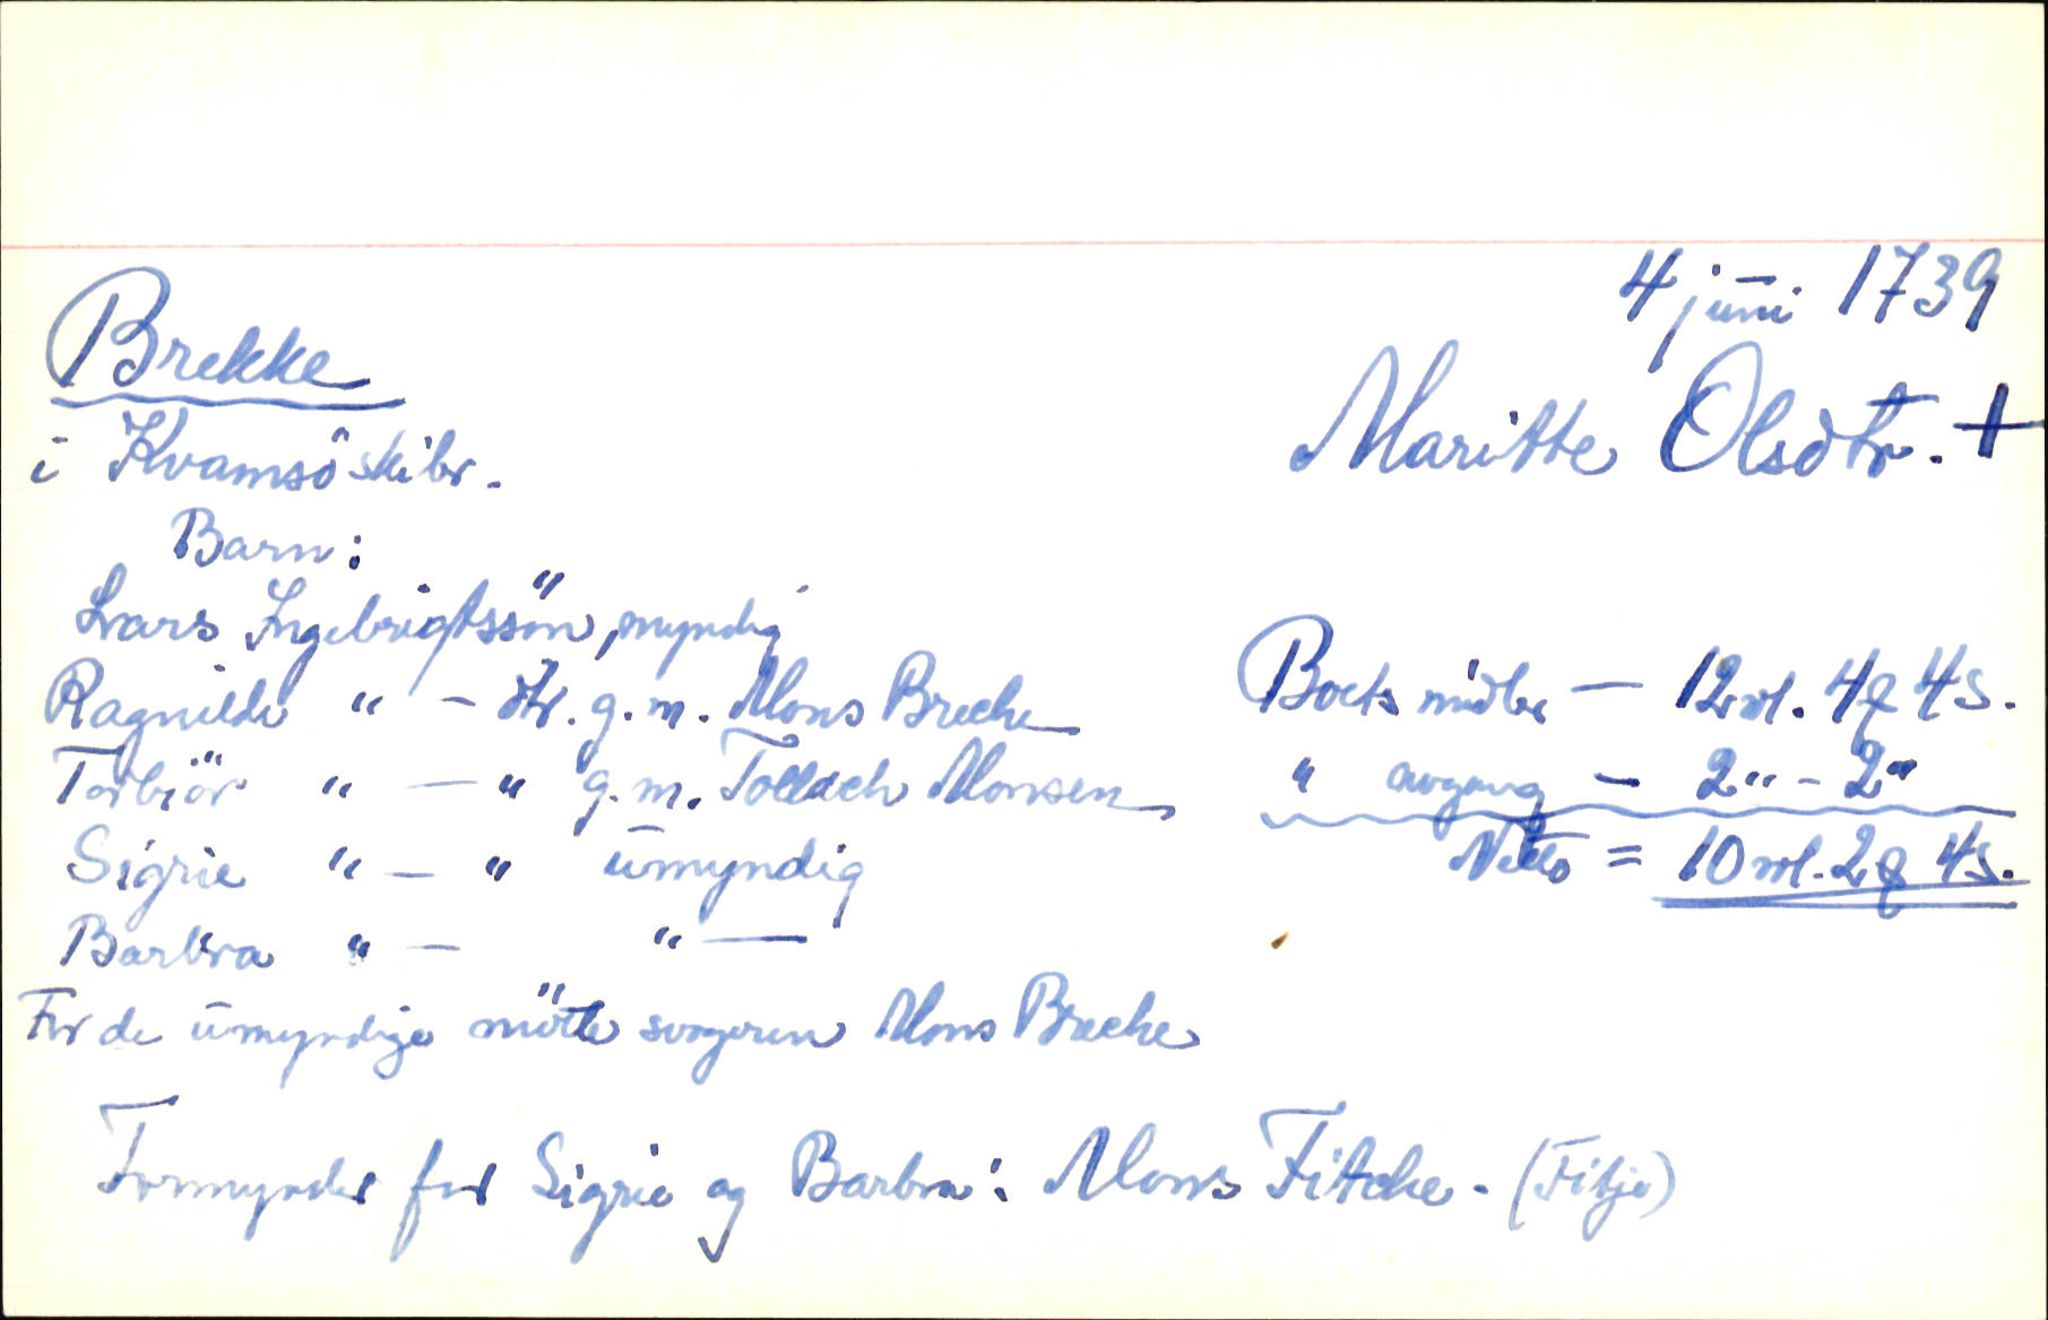 4 juni 1739
Brekke
i Kvamsö skibr.
Maritte Olsdtr. +
Barn:
Lars Ingebrigtssön, myndig
Ragnilde " - dtr. g. m. Mons Breche
Torbiör " — " g. m. Tollach Monsen
Sigrie " — " umyndig
Barbra " — " —
For de umyndige mötte svogeren Mons Breche
Boets midler — 12 rd. 4 ₰ 4 s.
" avgang — 2 " - 2 "
Netto = 10 rd. 2 ₰ 4 s.
Formynder for Sigrie og Barbra: Mons Fitche - (Fitje)